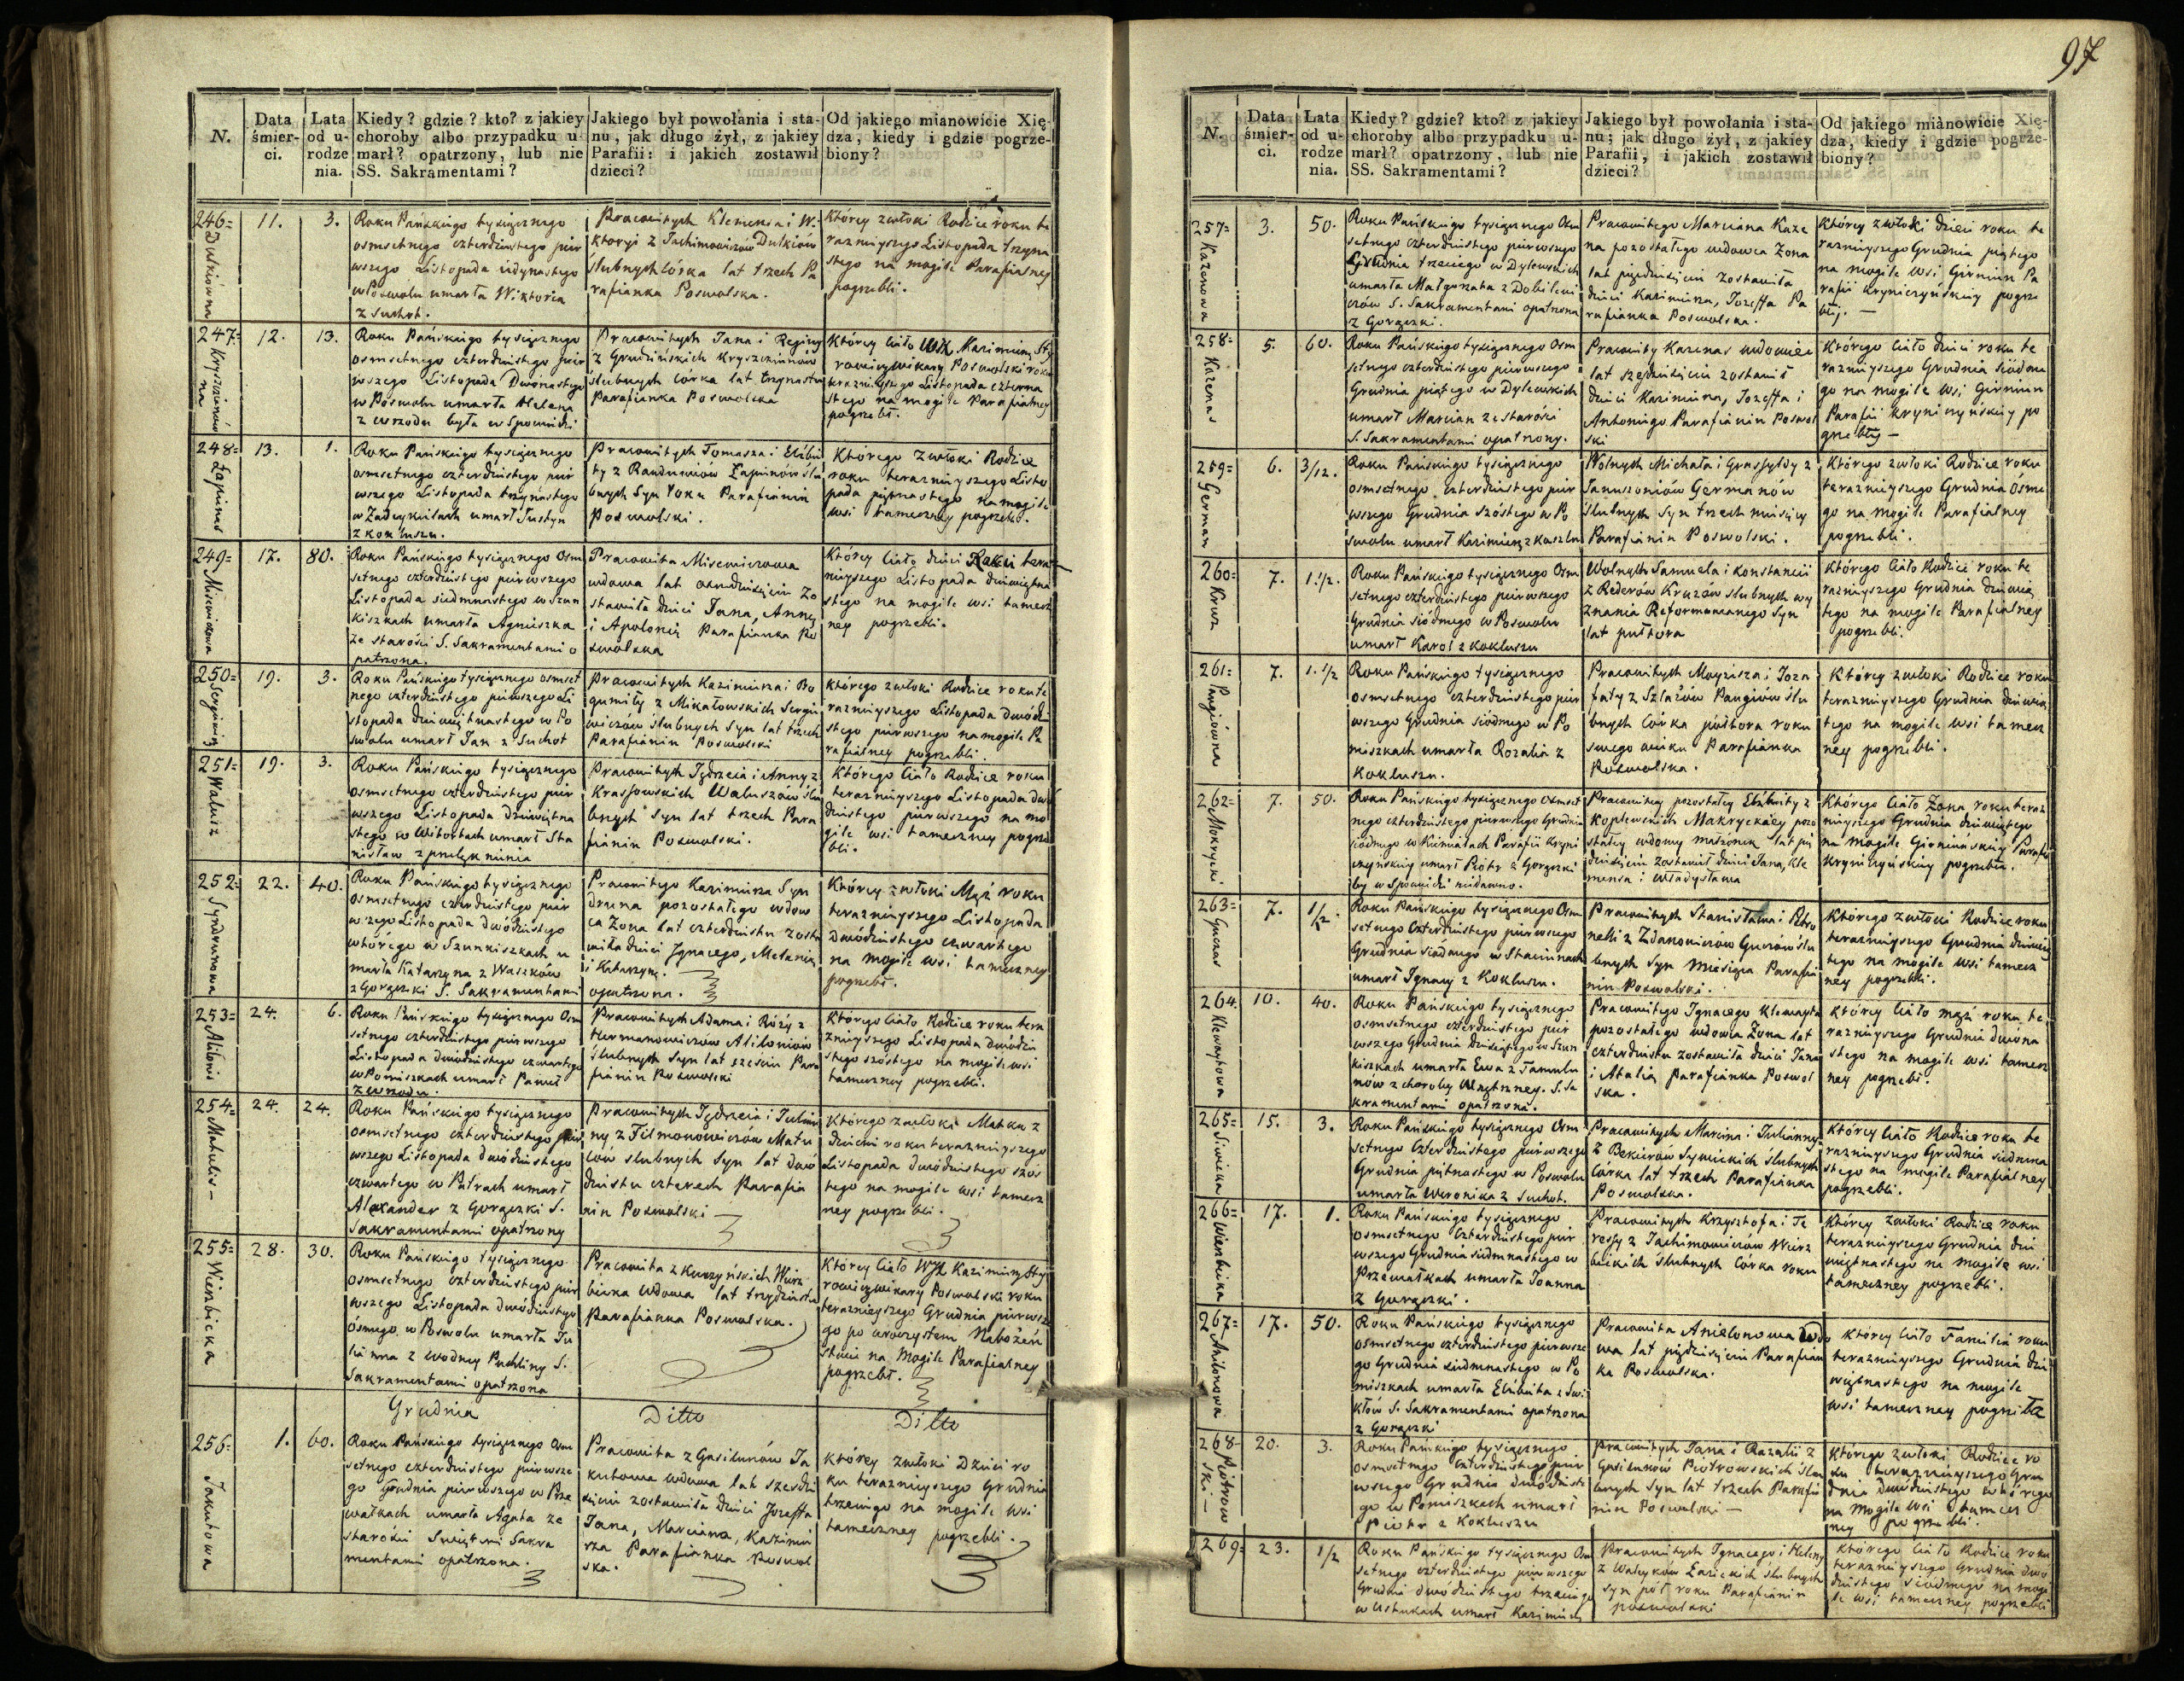 97
N.
Data śmier- ci.
Lata od u- rodze nia.
Kiedy? gdzie? kto? z jakiey choroby albo przypadku u- marł? opatrzony, lub nie SS. Sakramentami?
Jakiego był powołania i sta- nu, jak długo żył, z jakiey Parafii: i jakich zostawił dzieci?
Od jakiego mianowicie Xię- dza, kiedy i gdzie pogrze- biony?
246=
Dulkiówna
11.
3.
Roku Pańskiego tysiącznego
osmsetnego czterdziestego pier
wszego Listopada iedynastego
w Poswolu umarła Wiktoria
z Suchot.
Pracowitych Klemensa i Wi
ktoryi z Jachimowiczów Dulkiów
ślubnych Córka lat trzech Pa
rafianka Poswolska.
Którey zwłoki Rodzice roku te
raznieyszego Listopada trzyna
stego na mogile Parafialney
pogrzebli.
247=
12.
13.
Roku Pańskiego tysiącznego
osmsetnego czterdziestego pier
wszego Listopada Dwónastego
w Poswolu umarła Helena
z wrzodu była w Spowiedzi
Pracowitych Jana i Reginy
z Grudzińskich Kryszczunów
ślubnych córka lat trzynastu
Parafianka Poswolska
Którey Ciało WJX Kazimierz Sty
rowicz wikary Poswolski roku
teraznieyszego Listopada czterna
stego na mogile Parafialney
pogrzebł.
248=
Łapinas
13.
1.
Roku Pańskiego tysiącznego
osmsetnego czterdziestego pier
wszego Listopada trzynastego
w Zadeykielach umarł Justyn
z Kokluszu.
Pracowitych Tomasza i Elżbie
ty z Randuniów Łapinów ślu
bnych Syn roku Parafianin
Poswolski.
Którego zwłoki Rodzice
roku teraznieyszego Listo
pada piętnastego na mogile
wsi tameczney pogrzebli.
249=
Misewiczowa
17.
80.
Roku Pańskiego tysiącznego Osm
setnego czterdziestego pierwszego
Listopada siedmnastego w Szun
kiszkach umarła Agnieszka
ze starości S. Sakramentami o
patrzona.
Pracowita Misewiczowa
wdowa lat osmdziesięciu Zo
stawiła dzieci Jana, Annę
i Apolonią Parafianka Po
swolska
Którey Ciało dzieci Roku teraz
nieyszego Listopada dziewiętna
stego na mogile wsi tamecz
ney pogrzebli.
250=
19.
3.
Roku Pańskiego tysiącznego osmset
nego czterdziestego pierwszego Li
stopada dziewiętnastego w Po
swolu umarł Jan z Suchot
Pracowitych Kazimierza i Bo
gumiły z Mikałowskich Sergie
wiczów ślubnych Syn lat trzech
Parafianin Poswolski
którego zwłoki Rodzice roku te
raznieyszego Listopada dwódzie
stego pierwszego na mogile Pa
rafialney pogrzebli.
251=
Waluiz
19.
3.
Roku Pańskiego tysiącznego
osmsetnego czterdziestego pier
wszego Listopada dziewiętna
stego w Witortach umarł Sta
nisław z przelęknienia
Pracowitych Jędrzeia i Anny z
Krassowskich Waluszów ślu
bnych Syn lat trzech Para
fianin Poswolski.
Którego Ciało Rodzice roku
teraznieyszego Listopada dwó
dziestego pierwszego na mo
gile wsi tameczney pogrze
bli.
252=
Syndrunowa
22.
40.
Roku Pańskiego tysiącznego
osmsetnego czterdziestego pier
wszego Listopada dwódziestego
wtórego w Szunkiszkach u
marła Katarzyna z Waszków
z Gorączki S. Sakramentami
Pracowitego Kazimierza Syn
druna pozostałego wdow
ca Zona lat czterdziestu zosta
wiła dzieci Jgnacego, Melanią
i Katarzynę.
opatrzona.
Którey zwłoki Mąż roku
teraznieyszego Listopada
Dwódziestego czwartego
na mogile wsi tameczney
pogrzebł.
253=
Alilonis
24.
6.
Roku Pańskiego tysiącznego Osm
setnego czterdziestego pierwszego
Listopada dwódziestego czwartego
w Pomiszkach umarł Paweł
z wrzodu.
Pracowitych Adama i Róży z
Hermanowiczów Alilonów
ślubnych Syn lat sześciu Para
fianin Poswolski
Którego Ciało Rodzice roku tera
znieyszego Listopada dwódzie
stego szóstego na mogile wsi
tameczney pogrzebli.
254=
Matulis-
24.
24.
Roku Pańskiego tysiącznego
osmsetnego czterdziestego pier
wszego Listopada dwódziestego
czwartego w Patrach umarł
Alexander z Gorączki S.
Sakramentami opatrzony
Pracowitych Jędrzeia i Julian
ny z Filmonowiczów Matu
lów ślubnych Syn lat dwó
dziestu czterech Parafia
nin Poswolski
Którego zwłoki Matka z
dziećmi roku teraznieyszego
Listopada dwódziestego szós
tego na mogile wsi tamecz
ney pogrzebli.
255=
Wierzbicka
28.
30.
Roku Pańskiego tysiącznego
osmsetnego czterdziestego pier
wszego Listopada dwódziestego
ósmego w Poswolu umarła Ju
lianna z wodney Puchliny S.
Sakramentami opatrzona
Pracowita z Kuczyńskich Wierz
bicka wdowa lat trzydziestu
Parafianka Poswolska.
Którey Ciało WJX Kazimierz Sty
rowicz wikary Poswolski roku
teraznieyszego Grudnia pierwsze
go po uroczystem Nabożeń
stwie na Mogile Parafialney
pogrzebł.
Grudnia
Ditto
Ditto
256=
Jakutowa
1.
60.
Roku Pańskiego tysiącznego Osm
setnego czterdziestego pierwsze
go Grudnia pierwszego w Prze
wałkach umarła Agata ze
starości Swiętemi Sakra
mentami opatrzona.
Pracowita z Gasilunów Ja
kutowa wdowa lat sześćdzie
sięciu zostawiła dzieci Jozeffa
Jana, Marciana, Kazimie
rza Parafianka Poswol
ska.
którey zwłoki Dzieci ro
ku teraznieyszego Grudnia
trzeciego na mogile wsi
tameczney pogrzebli.
N.
Data śmier- ci.
Lata od u- rodze nia.
Kiedy? gdzie? kto? z jakiey choroby albo przypadku u- marł? opatrzony, lub nie SS. Sakramentami?
Jakiego był powołania i sta- nu; jak długo żył, z jakiey Parafii, i jakich zostawił dzieci?
Od jakiego mianowicie Xię- dza, kiedy i gdzie pogrze- biony?
257=
Kazenowa
3.
50.
Roku Pańskiego tysiącznego Osm
setnego czterdziestego pierwszego
Grudnia trzeciego w Dylewskich
umarła Małgorzata z Dobilewi
czów S. Sakramentami opatrzona
z Gorączki.
Pracowitego Marciana Kaze
na pozostałego wdowca Zona
lat pięćdziesięciu zostawiła
dzieci Kazimierza, Jozeffa Pa
rafianka Poswolska.
Którey zwłoki dzieci roku te
raznieyszego Grudnia piątego
na mogile wsi Girniun Pa
rafii Krynicżyńskiey pogrze
bły.
258=
Kazenas
5.
60.
Roku Pańskiego tysiącznego Osm
setnego czterdziestego pierwszego
Grudnia piątego w Dylewskich
umarł Marcian ze starości
S. Sakramentami opatrzony.
Pracowity Kazenas wdowiec
lat sześdziesięciu zostawił
dzieci Kazimierza, Jozeffa i
Antoniego Parafianin Poswol
ski
Którego Ciało dzieci roku te
raznieyszego Grudnia siódme
go na mogile wsi Girniun
Parafii Krynicżyńskiey po
grzebły
259=
German
6.
3/12.
Roku Pańskiego tysiącznego
osmsetnego czterdziestego pier
wszego Grudnia szóstego w Po
swolu umarł Kazimierz z kaszlu
Wolnych Michała i Grassyldy z
Januszoniów Germanów
ślubnych Syn trzech miesięcy
Parafianin Poswolski.
Którego zwłoki Rodzice roku
teraznieyszego Grudnia ósme
go na mogile Parafialney
pogrzebli.
260=
Kruz
7.
1.1/2.
Roku Pańskiego tysiącznego Osm
setnego czterdziestego pierwszego
Grudnia siódmego w Poswolu
umarł Karol z Kokluszu
Wolnych Samuela i Konstancii
z Rederów Kruzów ślubnych wy
znania Reformowanego Syn
lat pułtora
Którego Ciało Rodzice roku te
raznieyszego Grudnia dziewią
tego na mogile Parafialney
pogrzebli.
261=
Pangiówna
7.
1.1/2
Roku Pańskiego tysiącznego
osmsetnego czterdziestego pier
wszego Grudnia siódmego w Po
miszkach umarła Rozalia z
Kokluszu.
Pracowitych Moyzisza i Joza
faty z Szlażów Pangiów ślu
bnych Córka półtora roku
swego wieku Parafianka
Poswolska.
Którey zwłoki Rodzice roku
teraznieyszego Grudnia dziewią
tego na mogile wsi tamecz
ney pogrzebli.
262=
Mokrycki
7.
50.
Roku Pańskiego tysiącznego Osmset
nego czterdziestego pierwszego Grudnia
siódmego w Kiemiałach Parafii Kryni
czyńskiey umarł Piotr z Gorączki
był w Spowiedzi niedawno.
Pracowitey pozostałey Elżbiety z
Koplewskich Makryckiey pozo
stałey wdowy małżonek lat pię
dziesięciu zostawił dzieci Jana, Kle
mensa i Władysława
Którego Ciało Zona roku teraz
nieyszego Grudnia dziewiątego
na mogile Girniuńskiey Parafii
Krynicżyńskiey pogrzebła.
263=
7.
1/12.
Roku Pańskiego tysiącznego Osm
setnego Czterdziestego pierwszego
Grudnia siódmego w Stacinach
umarł Jgnacy z Kokluszu.
Pracowitych Stanisława i Petro
nelli z Zdanowiczów Guczów ślu
bnych Syn Miesiąca Parafia
nin Poswolski.
Którego zwłoki Rodzice roku
teraznieyszego Grudnia dziewią
tego na mogile wsi tamecz
ney pogrzebli.
264.
Klewaytowa
10.
40.
Roku Pańskiego tysiącznego
osmsetnego czterdziestego pier
wszego Grudnia Dziesiątego w Szun
kiszkach umarła Ewa z Tamulu
nów z choroby Wnętrzney. S. Sa
kramentami opatrzona.
Pracowitego Jgnacego Klewayta
pozostałego wdowca Zona lat
czterdziestu zostawiła dzieci Jana
i Atalią Parafianka Poswol
ska.
Którey Ciało mąż roku te
raznieyszego Grudnia dwóna
stego na mogile wsi tamecz
ney pogrzebł.
265=
Siwicka
15.
3.
Roku Pańskiego tysiącznego Osm
setnego Czterdziestego pierwszego
Grudnia piętnastego w Poswolu
umarła Weronika z Suchot.
Pracowitych Marcina i Julianny
z Bekierów Sywickich ślubnych
Córka lat trzech Parafianka
Poswolska.
Którey Ciało Rodzice roku te
raznieyszego Grudnia siedmna
stego na mogile Parafialney
pogrzebli.
266=
Wierzbicka
17.
1.
Roku Pańskiego tysiącznego
osmsetnego Czterdziestego pier
wszego Grudnia siedmnastego w
Przewałkach umarła Joanna
z Gorączki.
Pracowitych Krzysztofa i Te
ressy z Jachimowiczów Wierz
bickich ślubnych Córka roku
Którey zwłoki Rodzice roku
teraznieyszego Grudnia dzie
więtnastego na mogile wsi
tameczney pogrzebli.
267=
Anilonowa
17.
50.
Roku Pańskiego tysiącznego
osmsetnego czterdziestego pierwsze
go Grudnia siedmnastego w Po
miszkach umarła Elżbieta z Swi
kłów S. Sakramentami opatrzona
z Gorączki
Pracowita Anielonowa Wdo
wa lat pięćdziesięciu Parafian
ka Poswolska.
Którey Ciało Familia roku
teraznieyszego Grudnia dzie
więtnastego na mogile
wsi tameczney pogrzebła
268
Piotrow
ski
20.
3.
Roku Pańskiego tysiącznego
osmsetnego czterdziestego pier
wszego Grudnia dwódzieste
go w Pomiszkach umarł
Piotr z Kokluszu
Pracowitych Jana i Rozalii z
Gasilunów Piotrowskich ślu
bnych Syn lat trzech Parafia
nin Poswolski
Którego zwłoki Rodzice ro
ku teraznieyszego Gru
dnia Dwódziestego wtórego
na mogile wsi tamecz
ney pogrzebli.
269=
23.
1/2
Roku Pańskiego tysiącznego Osm
setnego czterdziestego pierwszego
Grudnia dwódziestego trzeciego
w Ustukach umarł Kazimierz
Pracowitych Jgnacego i Heleny
z Waleyków Łazickich ślubnych
Syn pół roku Parafianin
poswolski
Którego Ciało Rodzice roku
teraznieyszego Grudnia dwó
dziestego siódmego na mogi
le wsi tameczney pogrzebli